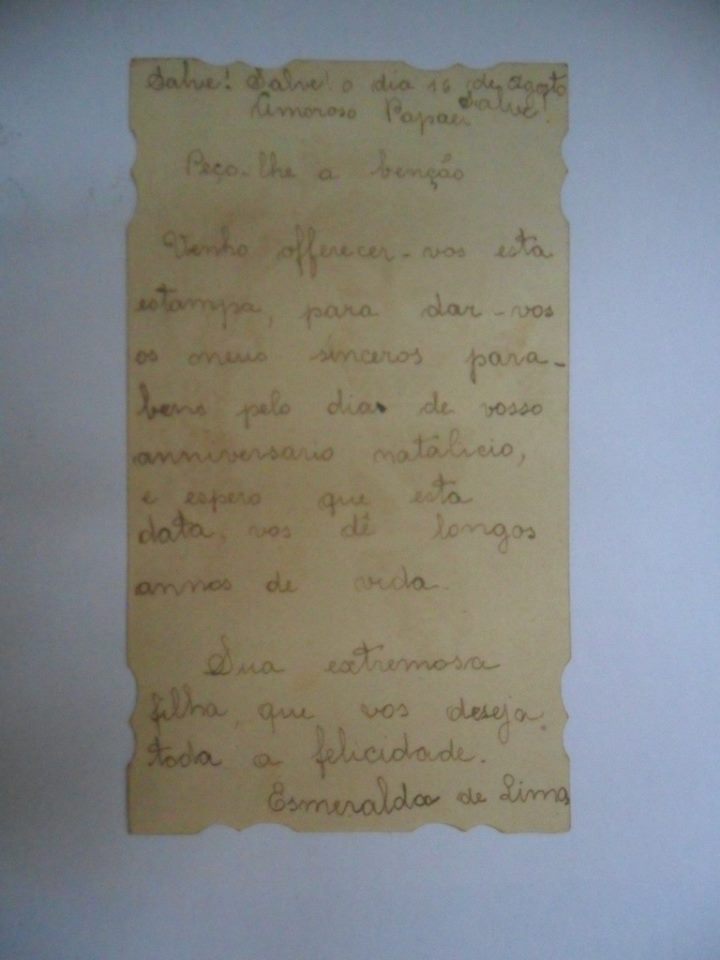 Salve! Salve! o dia 16 de Agosto
Salve!
Amoroso Papaei
Peço-lhe a benção
Venho offerecer-vos esta
estampa, para dar-vos
os meus sinceros para-
bens pelo dia de vosso
anniversario natálicio,
e espero que esta
data, vos dê longos
annos de vida.
Sua extremosa
filha, que vos deseja,
toda a felicidade.
Esmeralda de Lima